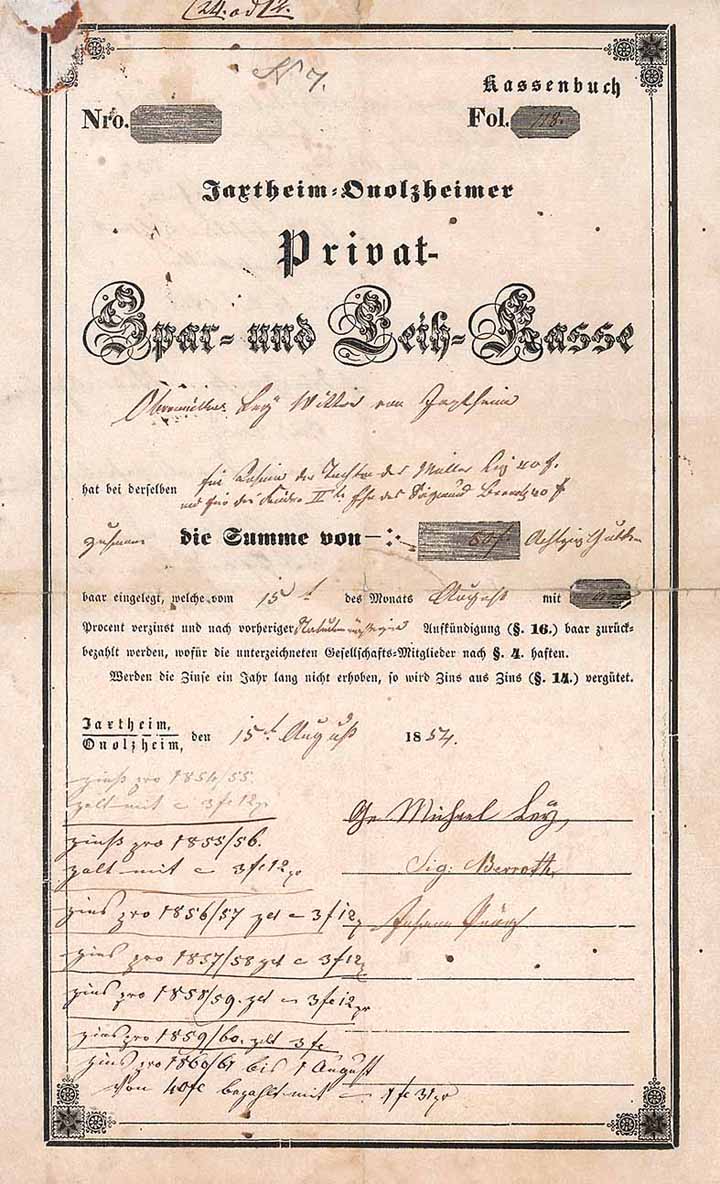 N 7.
Kassenbuch
Nro.
Fol. 118.
Jaxtheim-Onolzheimer
Privat-
Spar- und Leih-Kasse
Obermüller Ley Wittwe von Jaxtheim
hat bei derselben
der Tochter des Müller Ley 40 f.
zusamen die Summe von 80f Achtzig Gulden
baar eingelegt, welche vom 15t des Monats August mit
Procent verzinst und nach vorheriger Aufkündigung (§. 16.) baar zurück-
bezahlt werden, wofür die unterzeichneten Gesellschafts-Mitglieder nach §. 4. haften.
Werden die Zinse ein Jahr lang nicht erhoben, so wird Zins aus Zins (§. 14.) vergütet.
Jaxtheim,
Onolzheim, den 15t August 1854.
zinß pro 1854/55.
zalt mit 3f 12
Michael Ley
zinß pro 1855/56.
zalt mit 3f 12
Sig: Berroth
zins pro 1856/57 3f 12
Johann
zins pro 1857/58 3f 12
zins pro 1858/59. 3f 12
zins pro 1859/60. 3f
zins pro 1860/61 bis 1 August
von 40f bezahlt mit 1f 31